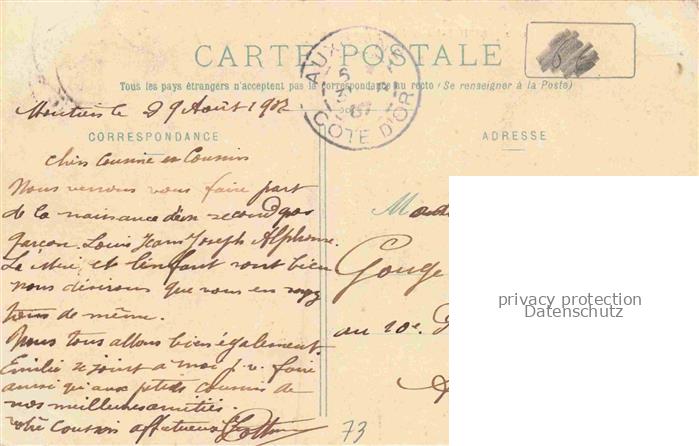 CARTE POSTALE
Tous les pays étrangers n'acceptent pas la correspondance au recto (Se renseigner à la Poste)
AUX
COTE D'OR
le 29 Août 1907
CORRESPONDANCE
ADRESSE
Chers Cousine et Cousins
Nous venons vous faire part
de la naissance d'un second gros
garçon. Louis Jean Joseph Alphonse.
La Mère, et l'enfant vont bien
nous désirons que vous en soyez
tous de même.
Nous tous allons bien également.
Emilie se joint à moi p. v. faire
ainsi qu'aux petits cousins de
nos meilleures amitiés.
votre Cousin affectueux
Gouge
au 10e
73
privacy protection
Datenschutz